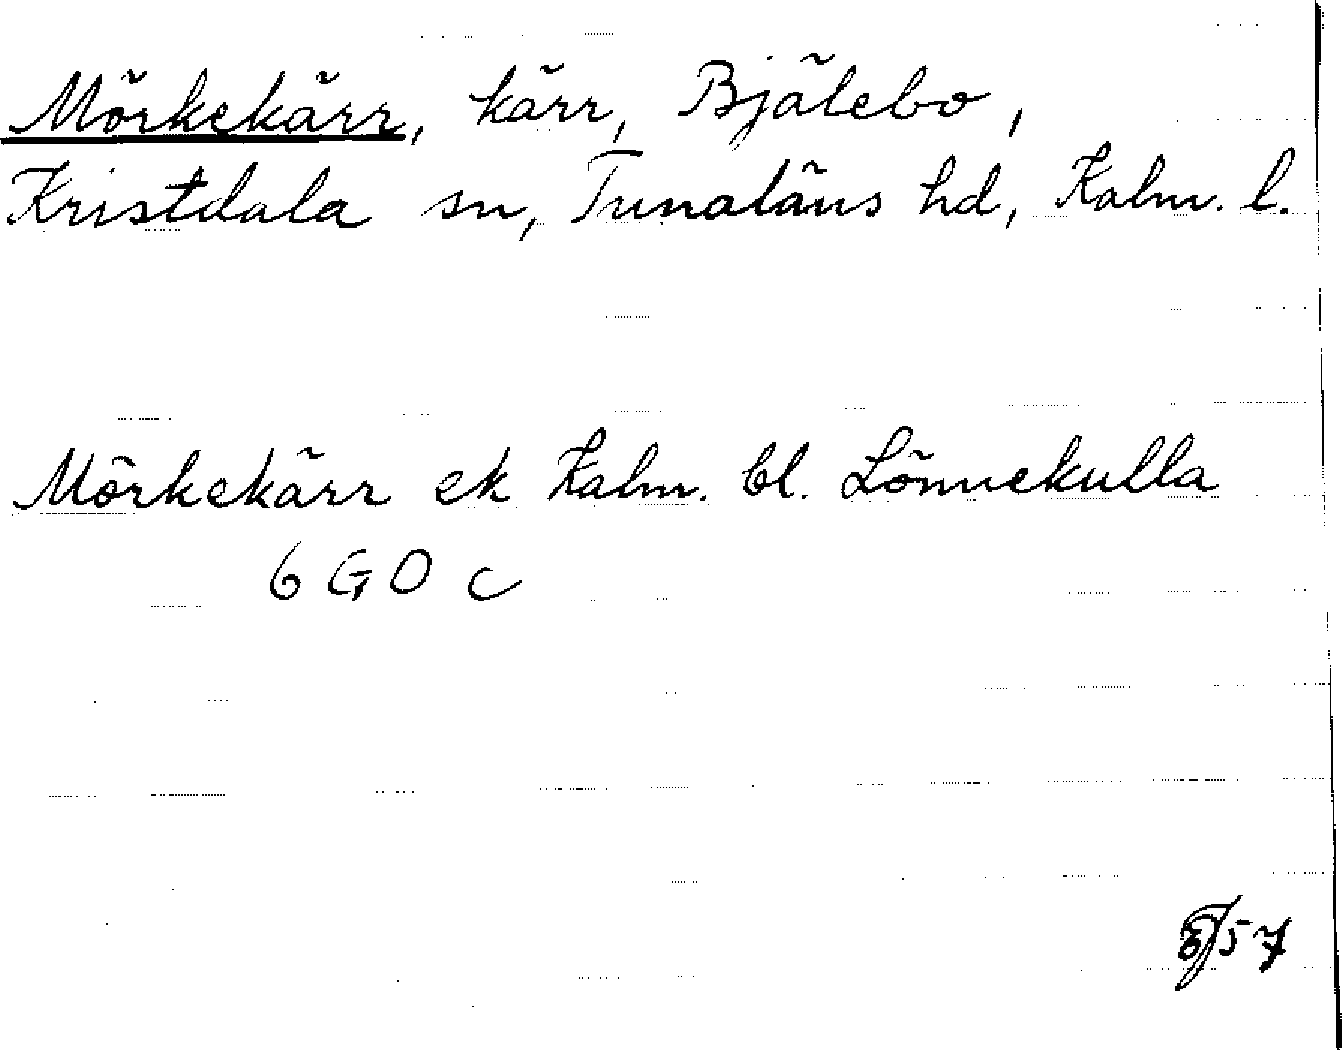 Mörkekärr, kärr, Bjälebo,
Kristdala sn, Tunaläns hd, Kalm. l.
Mörkekärr ek Kalm. bl. Lönnekulla
6 G O c
57